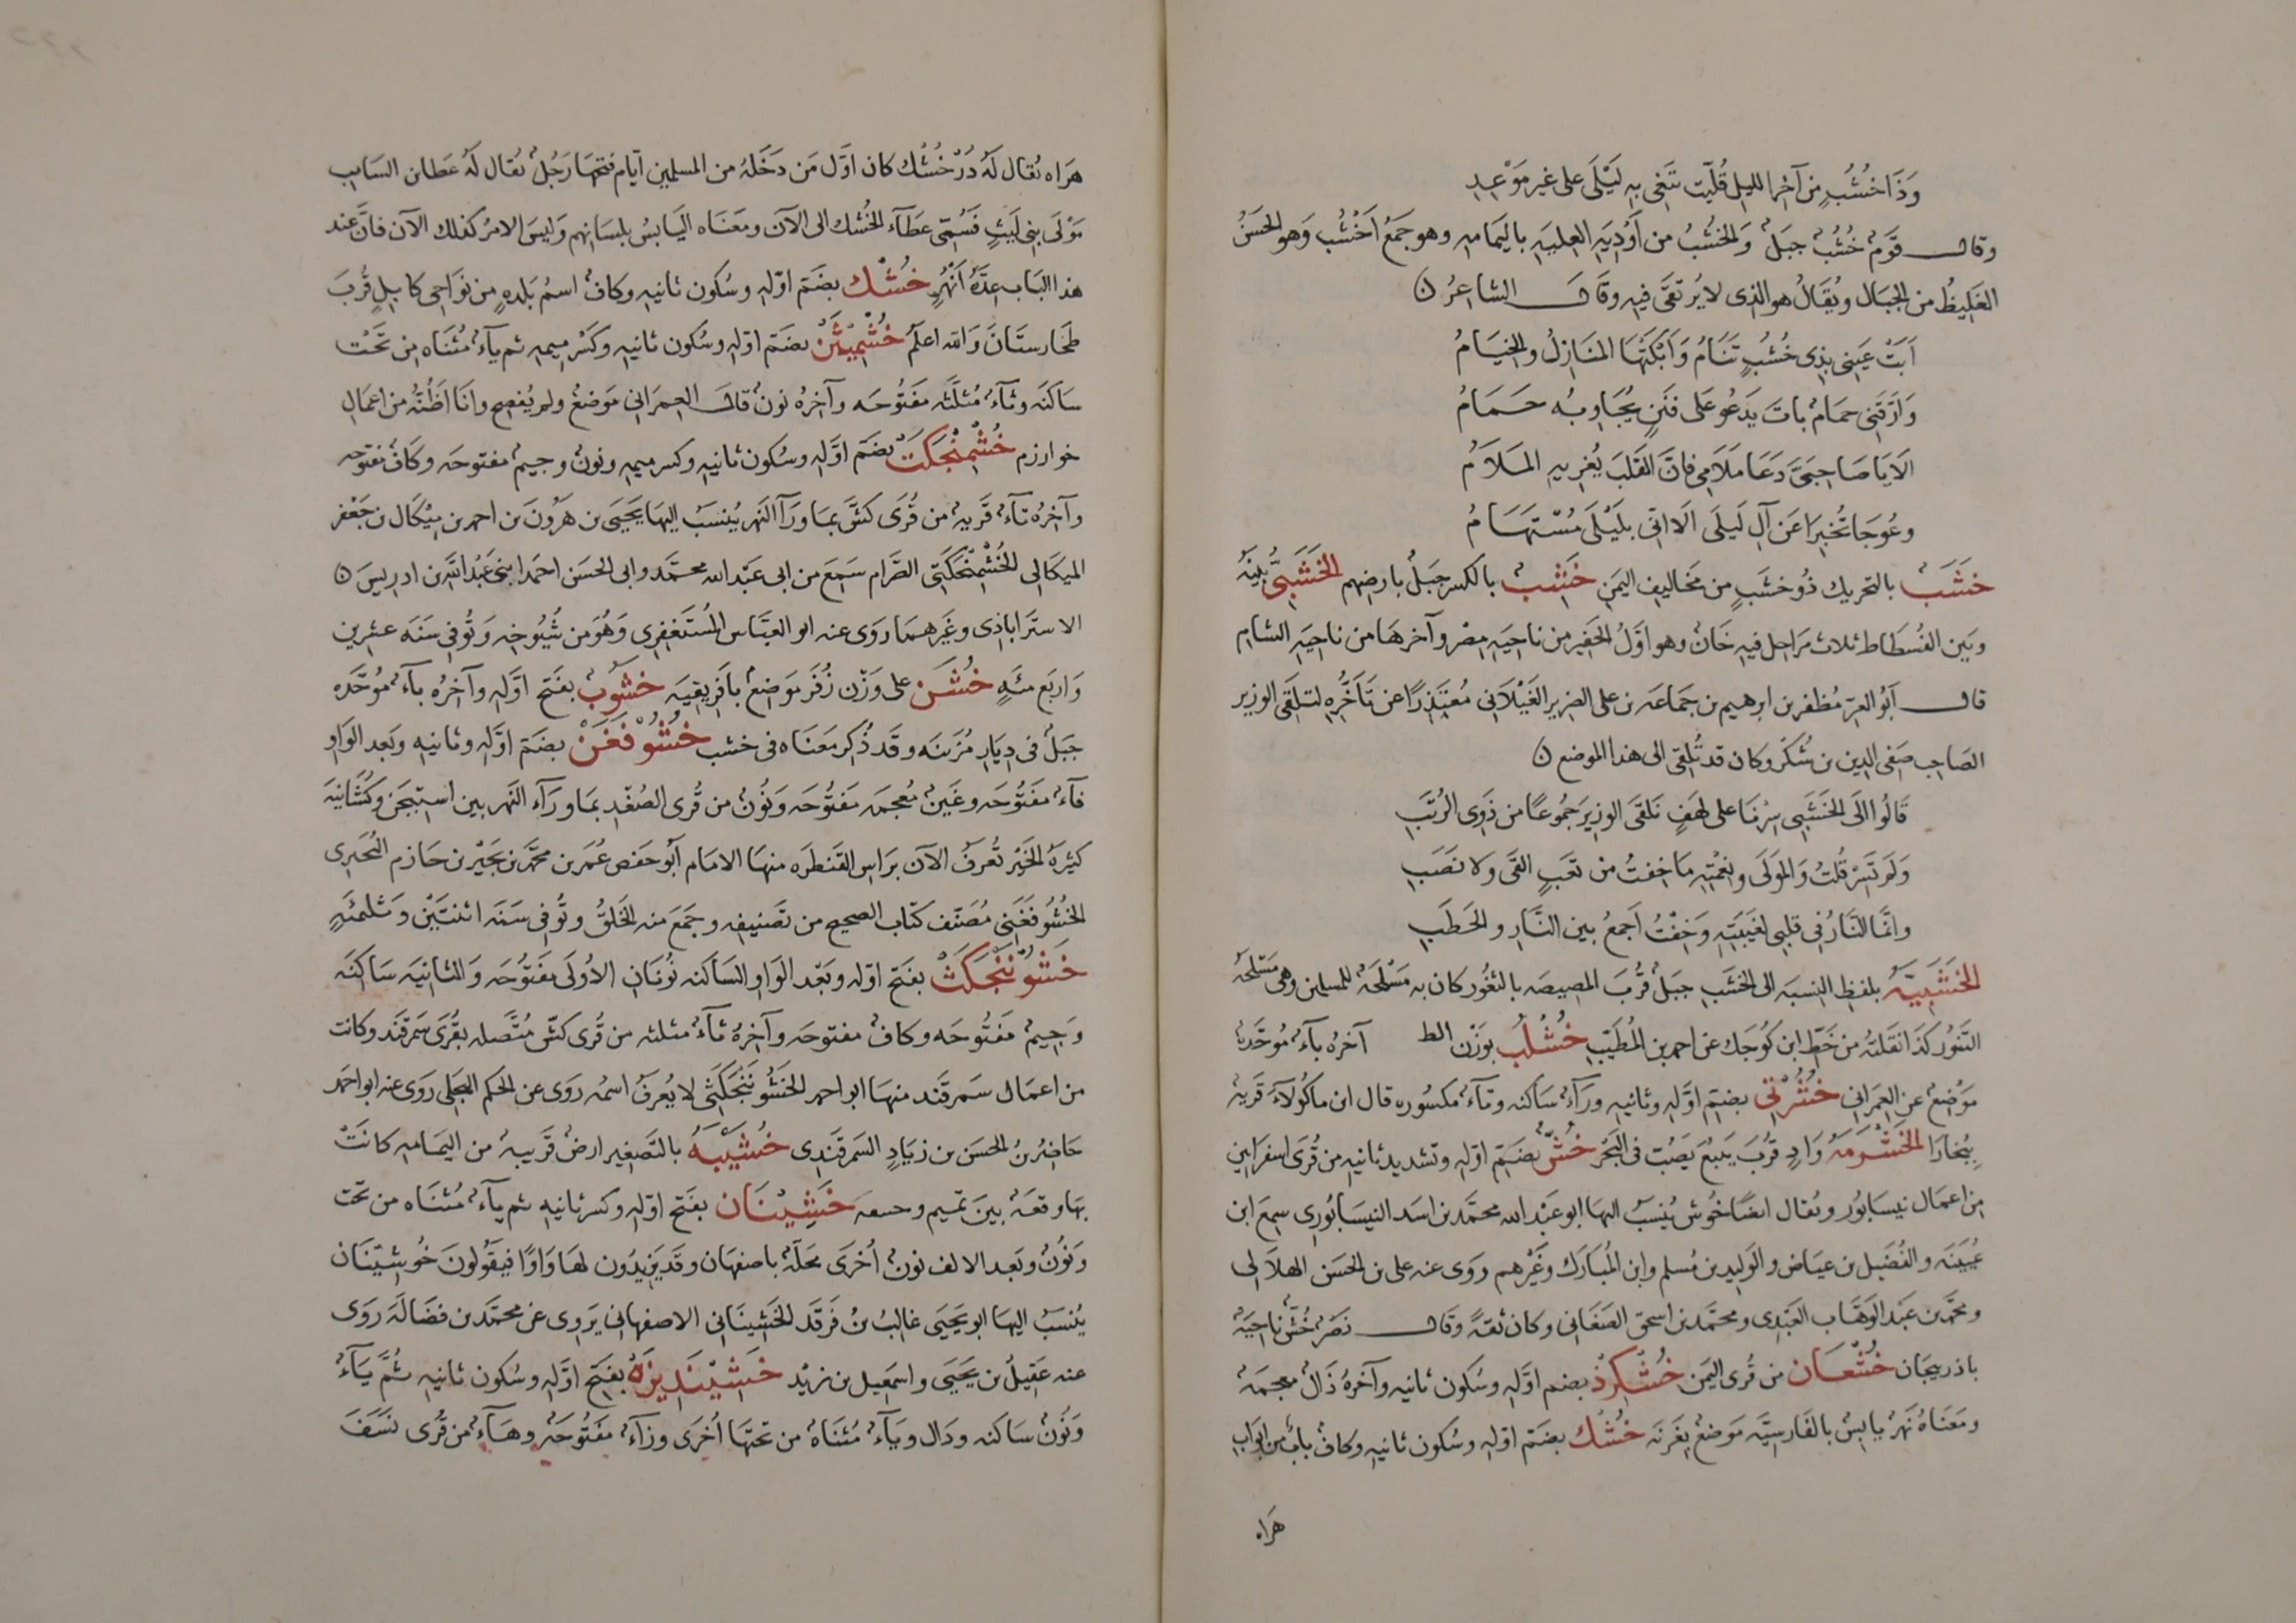 وَذَا خُشُبٍ من آخر الليل قُلّبت تَبغى به لَيْلَى على غير مَوْعِدِ
وقال قَوم خُشُبٌ جبَلٌ وَالخُشُبُ من أودِيَةِ العِليَةِ باليَمامه وهو جَمعُ أخشَب وهو الخَشِنُ
الغَلِيظُ من الجِبَال ويُقَالُ هو الذى لا يُرتَقَى فيه وقَال الشاعِرُ ن
أَبَتْ عَينى بِذى خُشُبٍ تَنَامُ وَأَبْكَتْهَا المنَازِلُ والخِيَامُ
وَأرّقَنِى حمَامٌ بات يَدعُو عَلى فَنَنٍ يُجَاوِبُه حَمَامُ
أَلا يَا صَاحِبَىَّ دَعَا مَلَامِى فانَّ القَلبَ يُغرِيهِ المَلَامُ
وعُوجَا تُخبِرا عَن آلِ لَيلَى أَلا انّى بلَيْلَى مُسْتَهَامُ
خَشَبٌ بالتحريك ذُو خشَبٍ من مَخاليف اليمَن خَشِبٌ بالكسر جبَلٌ بارضهم الخَشَبىُّ بينَهُ
وبَين الفُسطَاط ثلاث مَرَاحِل فيه خَانٌ وهو أوّلُ الجَفير من ناحيَةِ مصْر وآخرهَا من ناحيَةِ الشام
قال أبُو العزّ مُظفر بن ابرهيم بن جَمَاعَه بن على الضرير الغَيْلَانى مُعتَذِرًا عن تَأخُّرِه لتلقَى الوزير
الصَاحِب صَفى الدين بن شُكْر وكان قد تُلُقى الى هذا الموضع ن
قَالُوا الَى الخَشَبِى سِرْنَا على لهَفٍ نَلقَى الوزيرَ جُمُوعًا من ذَوِى الرُتَبِ
وَلَم تَسِرْ قُلتُ وَالمَولَى ونِعْمَتِهِ مَا خِفتُ من تَعَبٍ القَى وَلا نَصَبِ
وانَّمَا النَارُ فى قلبى لغَيبَتِهِ وَخِفْتُ أجمَعُ بين النَّارِ والحَطَبِ
الخَشَبِيَّةُ بلفظِ النِسبَه الى الخشَبِ جبَلٌ قُربَ المصيصَه بالثغُور كان به مَسْلَحَةٌ للمسلمين وهى مَسْلحَهُ
الثغُور كذَا نقَلتهُ من خَطّ ابن كُوجَك عن احمد بن الطَّيّب خُشْلُب بوَزْن الط آخرُه بآءٌ مُوَحّدَةٌ
مَوْضِعٌ عن العِمرَانى خُشُرْتى بضَمّ أوَّله وثانِيه ورَآءٌ سَاكنه وتآءٌ مكسُوره قال ابن ماكُولآ قَريَةٌ
بِبُخارَا الخَشْرَمَهُ وَادٍ قُربَ يَنبُع يَصُبّ فى البَحْر خُشٌّ بضَمّ اوّله وتشديد ثانيه من قُرَى اسفَرايين
مِن اعمَال نَيسَابُور ويُقال ايضًا خُوش يُنسَبُ اليها ابو عَبْد الله محمّد بن اسَد النيسَابُورِى سمعَ ابن
عُيَينَه والفُضَيل بن عيَاض والوَلِيد بن مُسلم وابن المُبَارَك وغَيْرهم رَوَى عنه على بن الحسَن الهلَالى
ومحمّد بن عبَد الوَهَّاب العَبْدِى ومحمَّد بن اسحق الصَغَانى وكان ثقةً وقَال نَصْرٌ خُشّ ناحِيَةٌ
باذربيجان خُشْعَان من قُرى اليَمَن خُشكَرذ بضم اوّله وسُكون ثانيه وآخرُهُ ذَالٌ معجمَةٌ
ومَعْنَاهُ نَهرٌ يابِسٌ بالفَارسِيَّه مَوضعٌ بِغَزنَه خُشْك بضَمّ اوّله وسُكون ثانيه وكافٌ بابٌ من ابَوابِ
هَرَاه
هَرَاه يُقال لَهُ دَرْخُشْك كان اوّل مَن دَخَلهُ من المسلمين ايّام فتحِهَا رَجُلٌ يُقال لَهُ عَطا بن السَايِب
مَوْلَى بنى لَيثٍ فَسُمّى عَطآءَ الخُشك الى الآن ومعَنَاه اليَابسُ بلسَانِهم وَليسَ الامرُ كذلك الآن فانَّ عند
هذا البَاب عِدّةُ أنهُرٍ خُشْك بضَمّ اوّله وسُكون ثانيه وكافٌ اسمُ بَلدةٍ من نوَاحِى كابلٍ قُربَ
طخارِستَانَ وَالله اعلَم خُشْمِيثَنْ بضَمّ اوّله وسُكون ثانيه وكَسْر ميمه ثم يآءٌ مُثَنّاه مِن تَحَت
سَاكنَه وثآءٌ مُثلّثَه مَفتُوحَه وآخِرُه نونٌ قال العِمرَانى مَوضعٌ ولم يُفصِح وانَا اظُنّهُ من اعمَالِ
خوارزم خُشْمِنْجَكَتْ بضَمّ اوّله وسُكون ثانيه وكسر ميمه ونون وجيمٌ مفتوحَه وكافٌ مفتوحه
وآخرُه تآءٌ قَريَةٌ من قُرَى كشّ بمَا ورَآ النَهر يُنسَبُ اليهَا يَحيَى بن هَرُونَ بن احمد بن مِيكَال بن جَعْفر
الميكالى الخُشْمِنْجَكَتى الصَّرام سَمِعَ من ابى عَبْد الله محمّد وابى الحسَن احمَد ابنى عَبْد الله بن ادريسَ ن
الاستَراباذِى وغَيرهمَا رَوَى عنه ابو العبَّاس المُسْتَغفِرِى وَهُوَ من شُيُوخه وَتُوفى سَنَه عشرين
وَاربَع مئَةٍ خُشَن على وَزْن زُفَر مَوضعٌ بافرِيقيَه خَشُوبٌ بفَتح اوّله وآخِرُه بآءٌ مُوَحّده
جبَلٌ فى دِيَار مُزَينَه وقَد ذُكِر مَعنَاه فى خشب خُشُوفَغَن بضَمّ اوّله وثانيه وبَعد الوَاو
فآءٌ مَفتُوحَه وغَينٌ مُعجمَه مَفتُوحَه ونُونٌ من قُرى الصُغْد بمَا ورَآء النّهر بين اسْتِيجَن وكُشَانيَه
كثيرَةُ الخَيْر تُعرَفُ الآن برَاس القَنطرَه منهَا الامَام أبُو حَفص عُمَر بن محمَّد بن بُجَيْر بن حَازم البُجَيرى
الخُشُوفَغَنِى مُصَنّف كتاب الصحيح من تَصنِيفِه وجَمَعَ منه الخَلقُ وتُوفى سَنَه اثنتَيْن وَثلثمئةٍ
خَشُونَنْجَكَثْ بفَتح اوّله وبَعْد الوَاو السَاكنه نُونَان الاُولَى مَفتُوحَه وَالثانيَه سَاكنَه
وَجيمٌ مَفتُوحَه وكافٌ مفتوحَه وآخِرهُ ثآءٌ مثلثه من قُرى كشّ مُتَّصله بقُرَى سَمرقَند وكانت
من اعمَال سَمرقَند منهَا ابو احمد الخَشُونَنْجَكَثى لا يُعرَفُ اسمُه رَوَى عن الحكم العِجلى رَوَى عنه ابو احمَد
حَاضِرُ بْن الحسَن بن زيَادٍ السَمرقَنْدِى خُشَيْبَهُ بالتَصغير ارضٌ قَريبَهٌ من اليمَامه كانَتْ
بهَا وَقعَةٌ بينَ تمِيم وحسعه خَشِينَان بفَتح اوّله وكسر ثانيه ثم يآءٌ مُثنَاه من تحت
وَنُونٌ وبَعد الالف نونٌ أُخرَى مَحلّةٌ باصفهَان وقَد يَزيدُون لهَا وَاوًا فيَقُولونَ خُوشِينَان
يُنسَبُ اليهَا ابو يَحيَى غالبُ بنُ فَرقَد الخَشِينَانى الاصفهانى يَروى عن محمَّد بن فضَالَةَ رَوَى
عنه عَقِيلُ بن يَحيَى واسمعِيل بن يزيد خَشِيْنَدِيزَهُ بفَتح اوّله وسُكون ثانيه ثُمَّ يَآءٌ
وَنُونٌ سَاكنه ودَال ويآءٌ مُثناهٌ من تحتهَا أُخرَى وزآءٌ مَفتُوحَةٌ وهَآءٌ من قُرى نَسَفَ